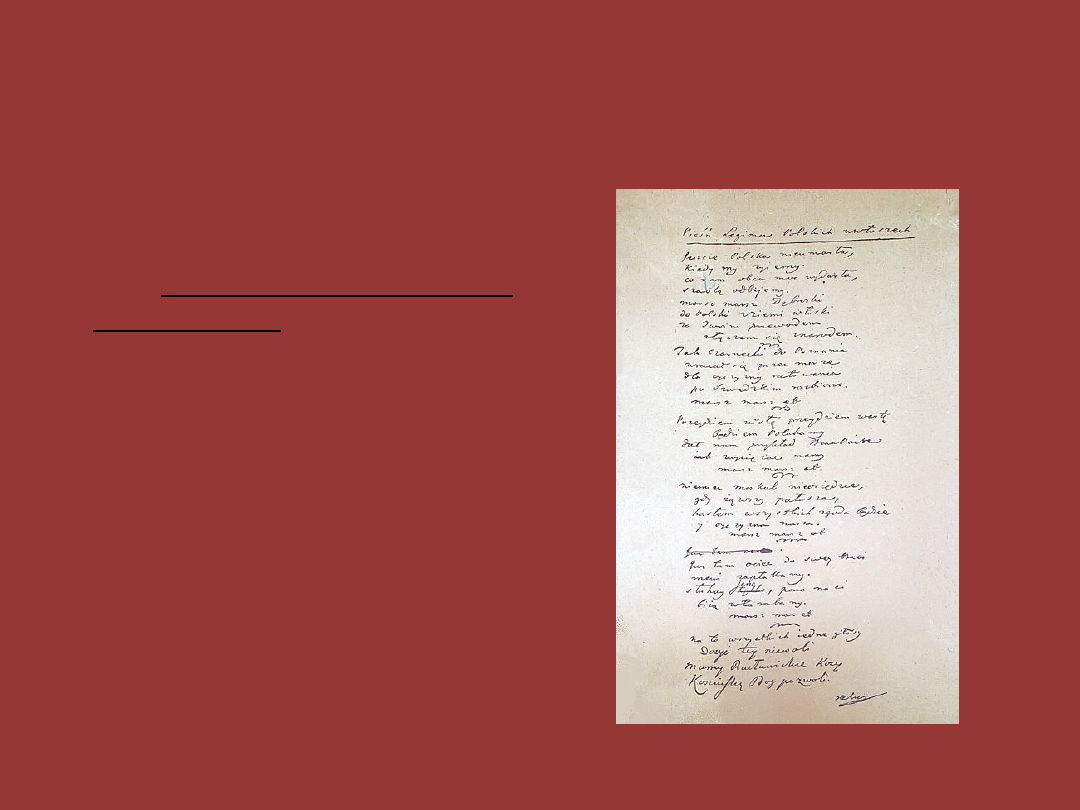 Pieśń Legionów Polskich we Włoszech
Jeszcze Polska nieumarła,
kiedy my żyiemy.
co nam obca moc wydarła,
szablą odbijemy.
marsz marsz Dąbrski
do Polski z ziemi włoski
za Twoim przewodem
złączem się z narodem.
Jak Czarnecki do Poznania
wracał się przez morze
dla oyczyzny ratowania
po Szwedzkim rozbiorze.
marsz marsz etc
Przejdziem Wisłę przejdziem Wartę
będziem Polakamy
dał nam przykład Bonaparte
iak zwyciężać mamy
marsz marsz etc.
niemiec moskal nieosiędzie,
gdy iąwszy pałasza,
hasłem wszystkich zgoda będzie
y oyczyzna nasza.
marsz marsz etc
Już tam ociec do swey Basi
mówi zapłakany.
słuchay jeno, pono nasi
biią w tarabany.
marsz marsz etc
na to wszystkich iedne głosy
Dosyć tey niewoli
mamy Racławickie Kosy
Kościuszkę Bóg pozwoli.